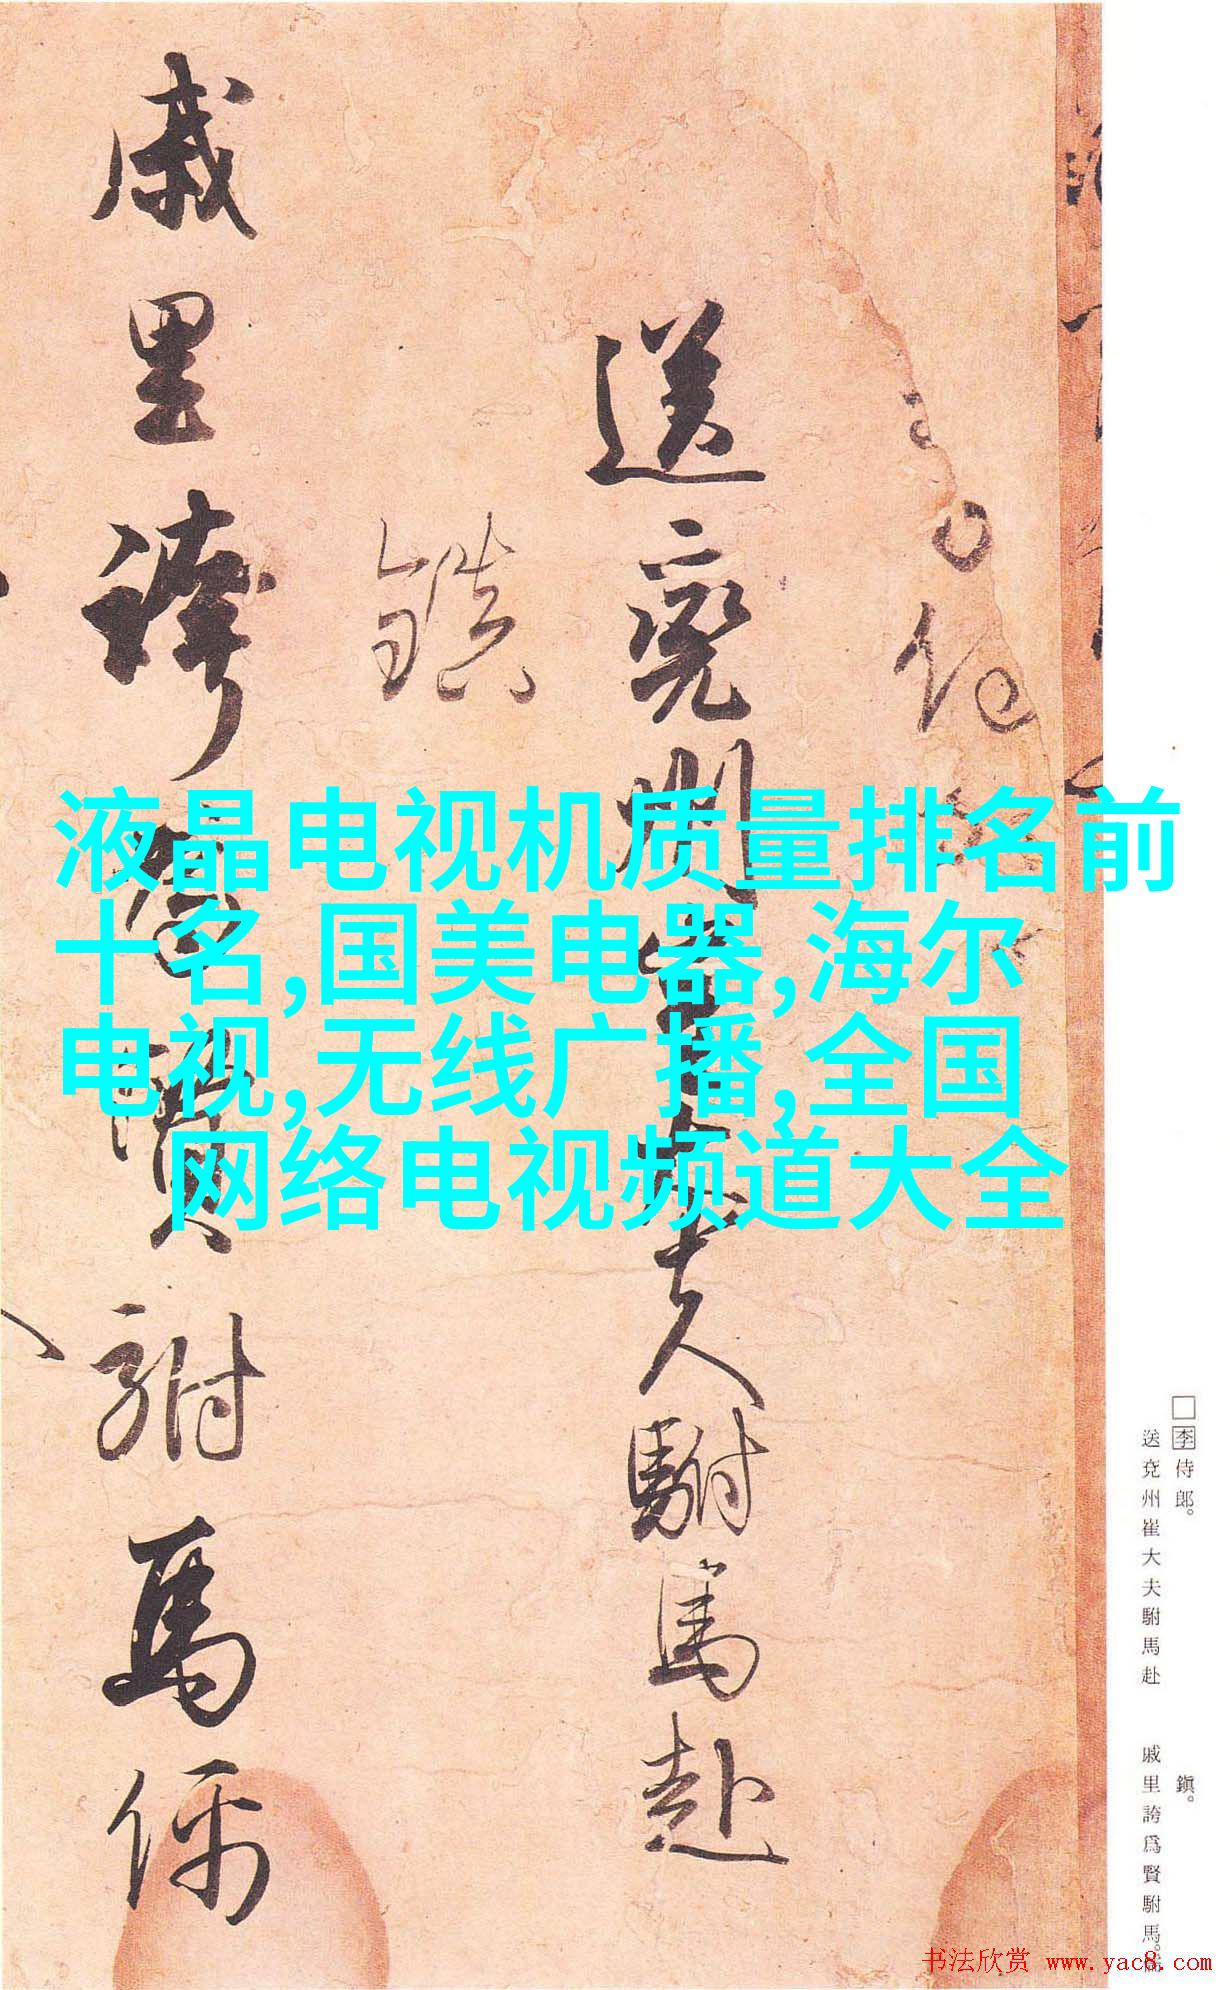 液晶电视机质量排名前
十名,国美电器,海尔
电视,无线广播,全国
网络电视频道大全
李侍郎。
送兖州崔大夫駙馬赴
鎮。
戚里誇為賢駙馬
□李侍郎。
送兗州崔大夫駙馬赴
鎮。
戚里誇爲賢駙馬。儒
书法欣赏 www.yac8.com